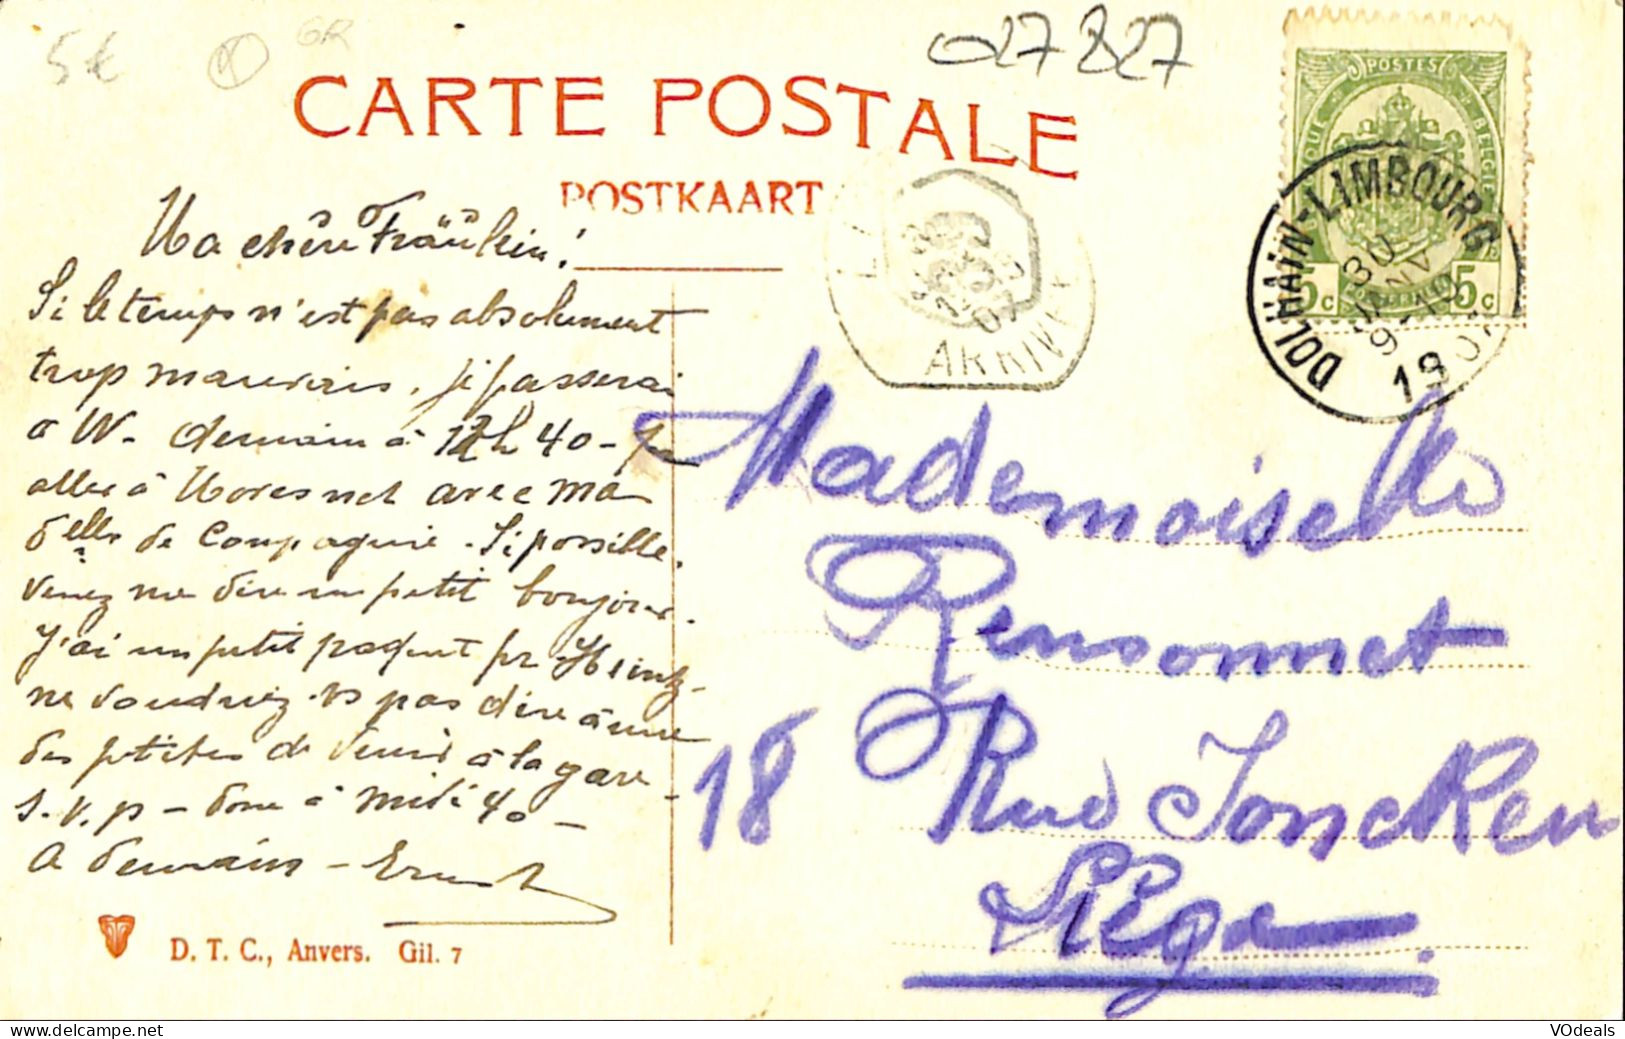 5€
GR
027827
CARTE POSTALE
POSTKAART
POSTES
BELGIQUE BELGIE
5c 5c
DOLHAIN-LIMBOURG
30
JANV
9
1907
07
ARRIVEE
Ma chère Fräulein!
Si le temps n'est pas absolument
trop mauvais, je passerai
à W- demain à 12h 40-
aller à Moresnet avec ma
delle de Compagnie. Si possible,
venez me dire un petit bonjour.
J'ai un petit paquet pr Heintz-
ne voudriez-vs pas dire à une
des petites de venir à la gare
S.V.p - donc à midi 40-
A demain - Ernest
Mademoiselle
Rensonnet
18 Rue Joncken
Liège
D. T. C., Anvers. Gil. 7
posted on
www.delcampe.net
VOdeals